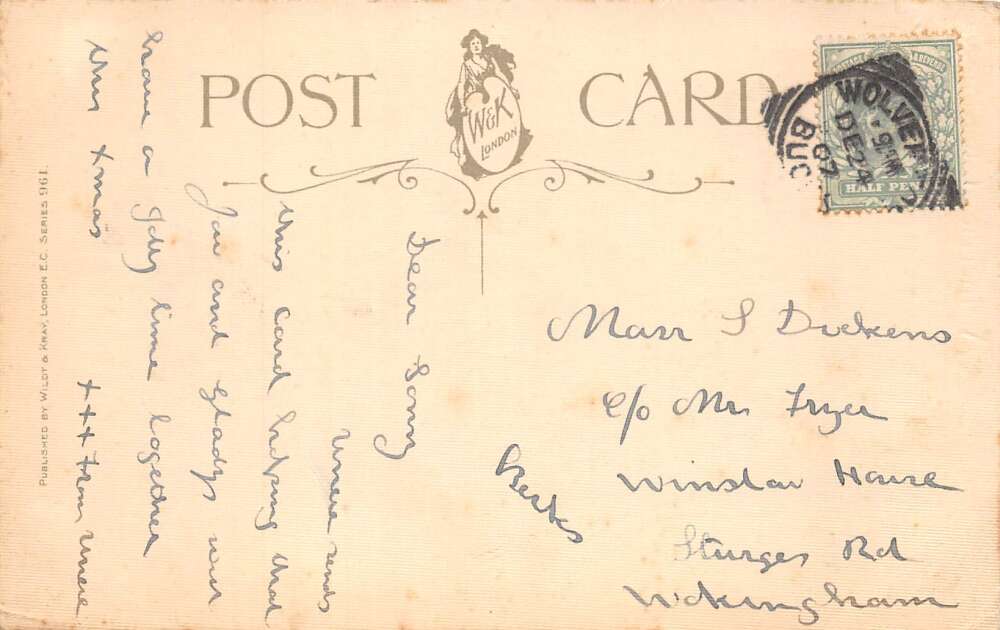 POST CARD
W&K
LONDON
POSTAGE & REVENUE
HALF PEN
WOLVER
9 PM
DE 24
07
BUC
Dear Sonny
Uncle sends
this card hoping that
you and Gladys will
have a jolly time together
this Xmas
+++ from Uncle
Masr S Dickens
c/o Mrs Fryer
Winslow House
Sturges Rd
Wokingham
Berks
PUBLISHED BY WILDT & KRAY, LONDON E.C. SERIES 961.